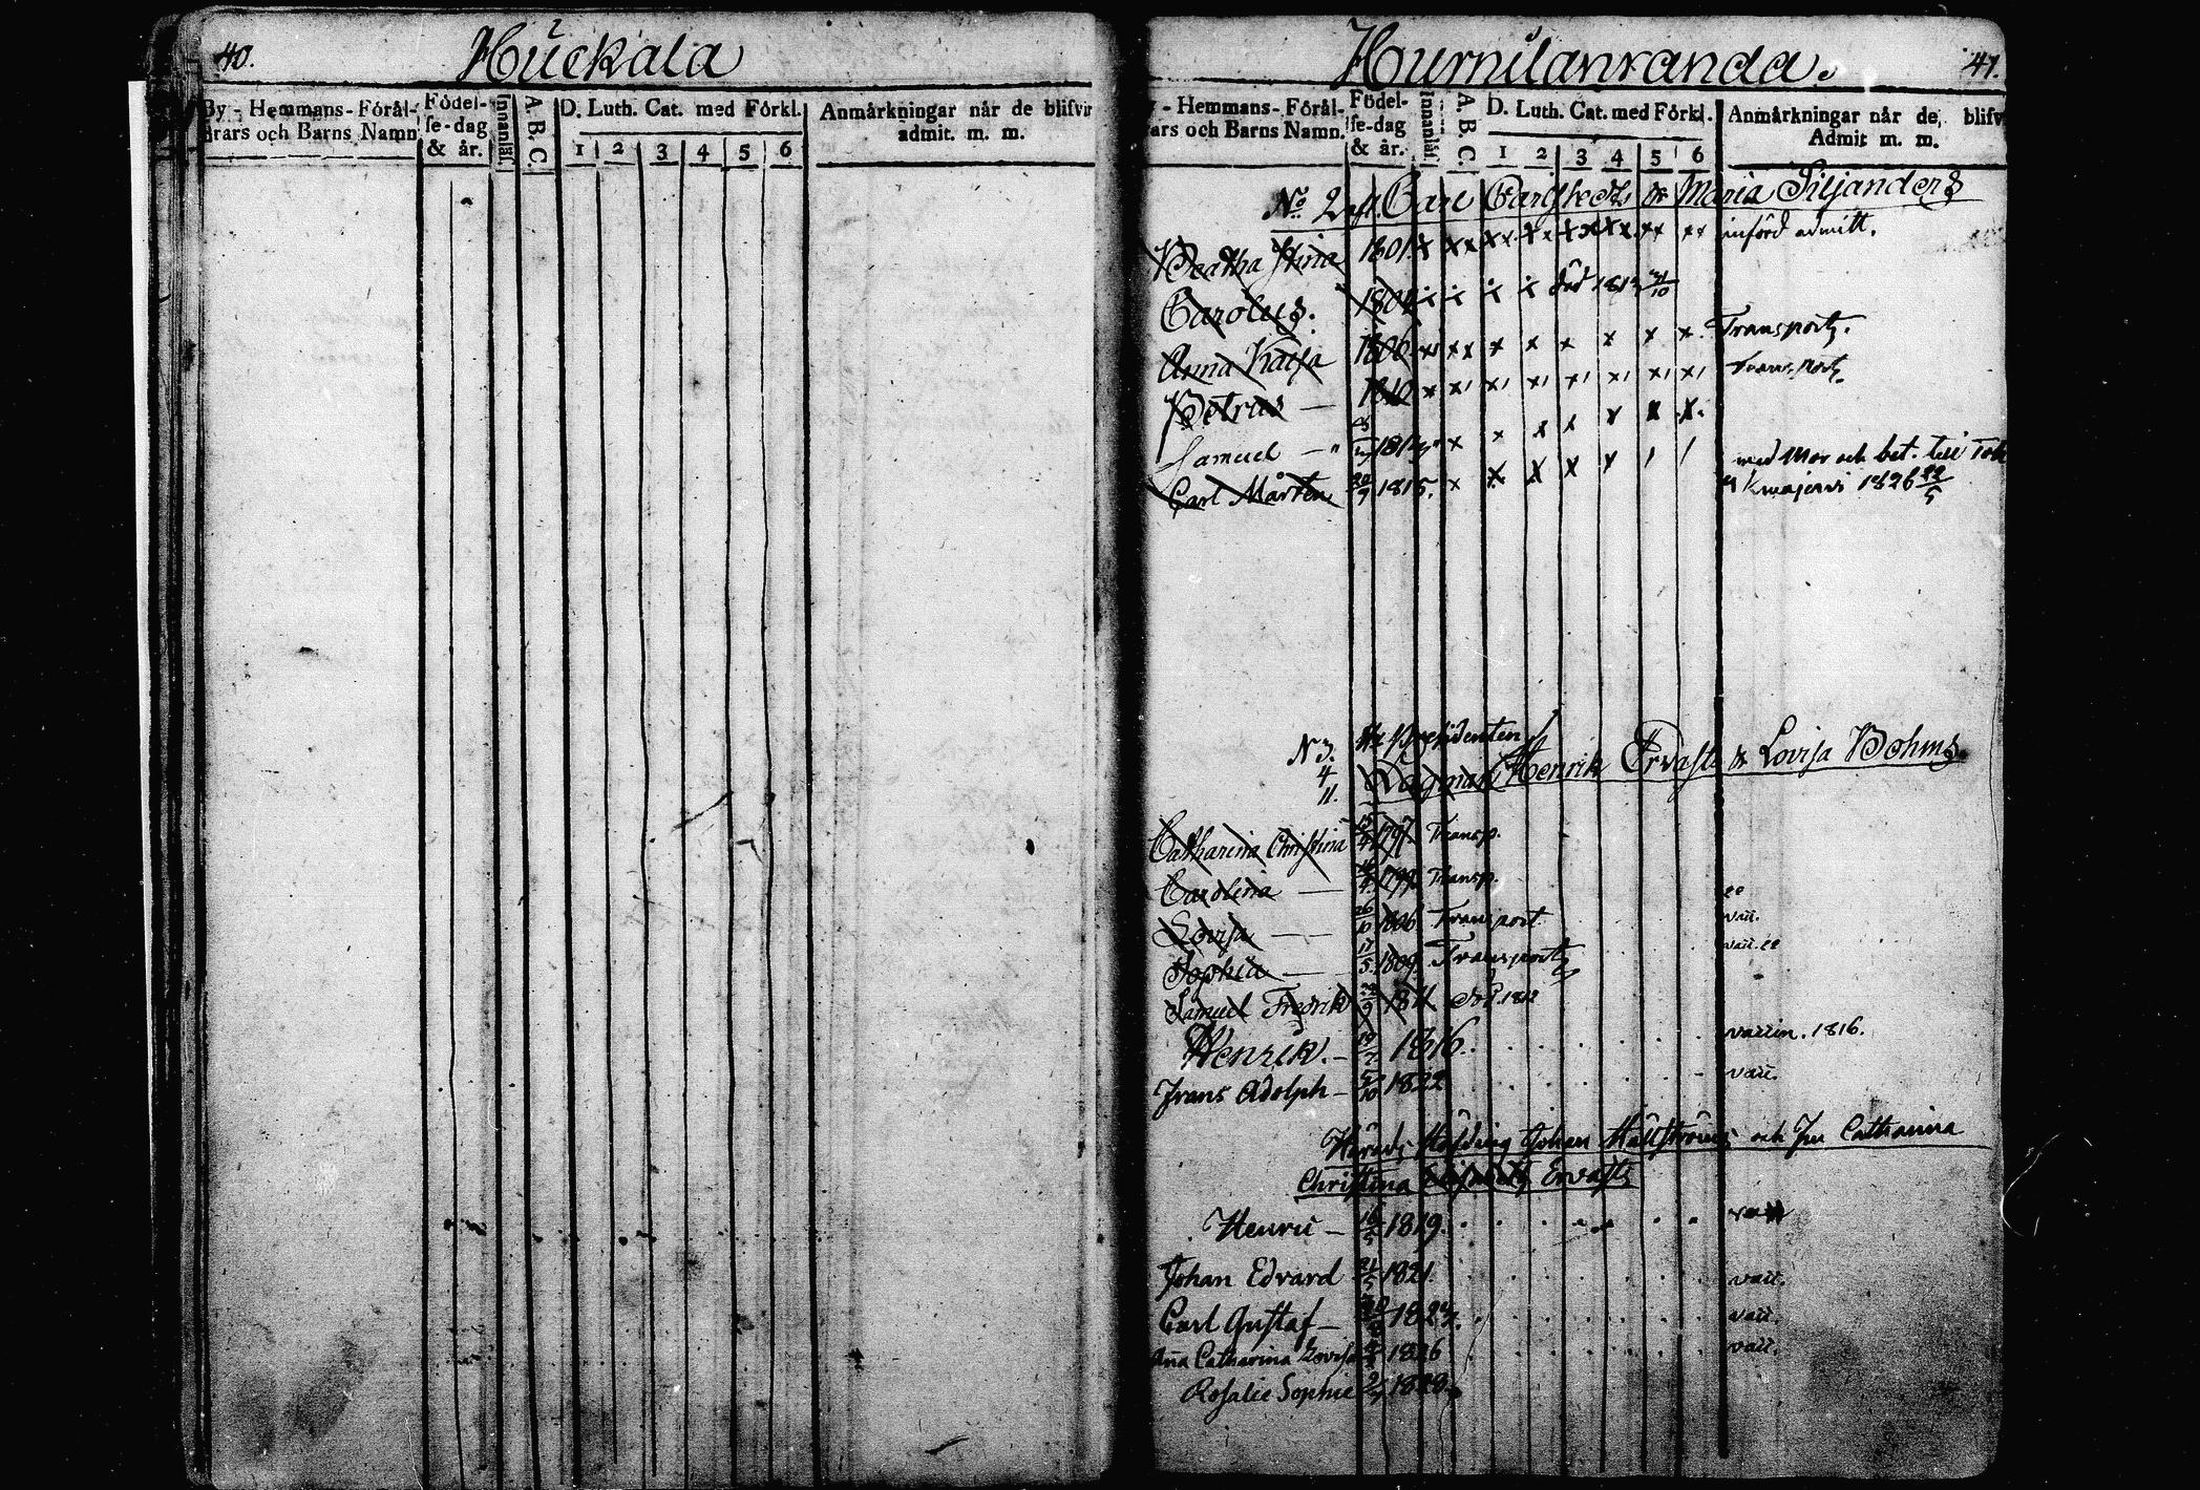 40.
Huckala
By - Hemmans - Förål-
drars och Barns Namn
Födel-
se-dag
& år.
Innanläs.
A. B. C.
D. Luth. Cat. med Förkl.
1 2 3 4 5 6
Anmärkningar når de blifvir
admit. m. m.
41.
Hurnilanranda.
- Hemmans - Förål-
ars och Barns Namn.
Födel-
se-dag
& år.
Innanläs.
A. B. C.
D. Luth. Cat. med Förkl.
1 2 3 4 5 6
Anmärkningar når de, blifv
Admit m. m.
No 2 Carl & Maria Siljanders
Beatha Stina 1801 x xx xx xx xx xx xx xx införd admitt.
Carolus. 1804 död 181 31/10
Anna Kaisa 1806 x xx x x x x x x. Transport.
Petrus — 1810 Transport.
Samuel — 181
Carl Mårten 20/9 1815. med Mor och bet. till
1826 22/5
N 3. Presidenten
4 Lagman Henrik Ervast & Lovisa Bohms
11.
Catharina Christina 1797 Transp.
Carolina — 1799 Transp.
Lovisa — 26/10 1806 Transport vacc.
Sophia — 17/5 1809. Transport vacc.
Samuel Fredrik 1811 död 1812
Henrik. — 1816. vaccin. 1816.
Frans Adolph — 5/10 1822 vacc.
Härads Höfding Johan Hällströms och Fru Catharina
Christina Ervast
Henric — 16/5 1819.
Johan Edvard 21/5 1821. vacc.
Carl Gustaf — 1824. vacc.
Anna Catharina Lovisa 1826 vacc.
Rosalie Sophie 1828